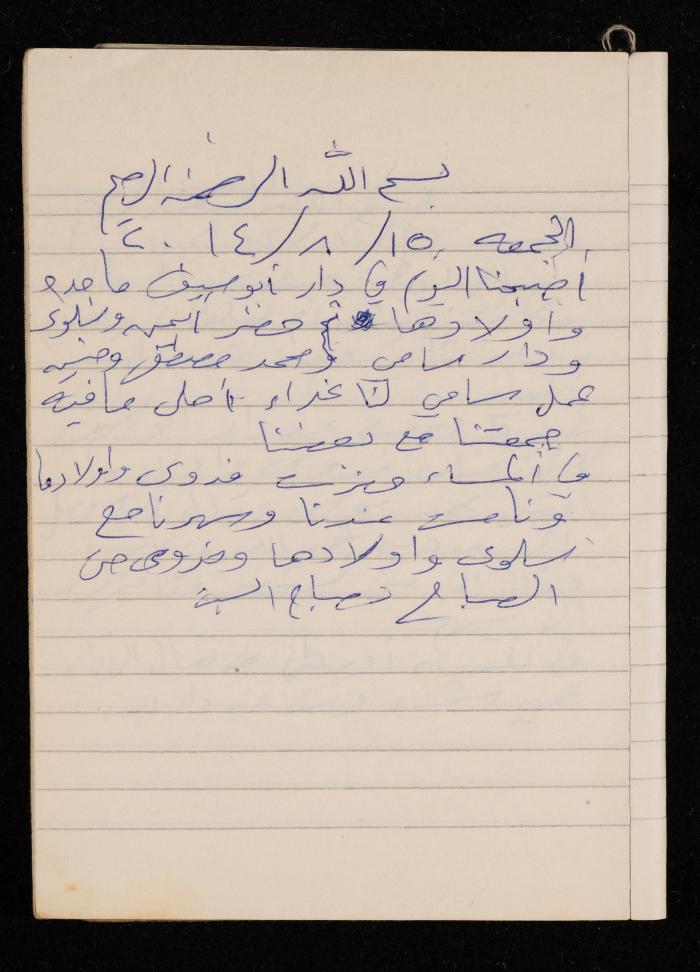 بسم الله الرحمن الرحيم
الجمعه ١٥/٨/٢٠١٤
أصبحنا اليوم في دار أبو سيف ماجده
واولادها ثم حضر أيمن وسلوى
ودار سامي ومحمد مصطفى وحسنيه
عمل سامي لنا غداء احلى مافيه
جمعتنا مع بعضنا
في ألمساء حضرت فدوى واولادها
ونامت عندنا وسهرنا مع
سلوى واولادها وفدوى حتى
الصباح صباح السبت